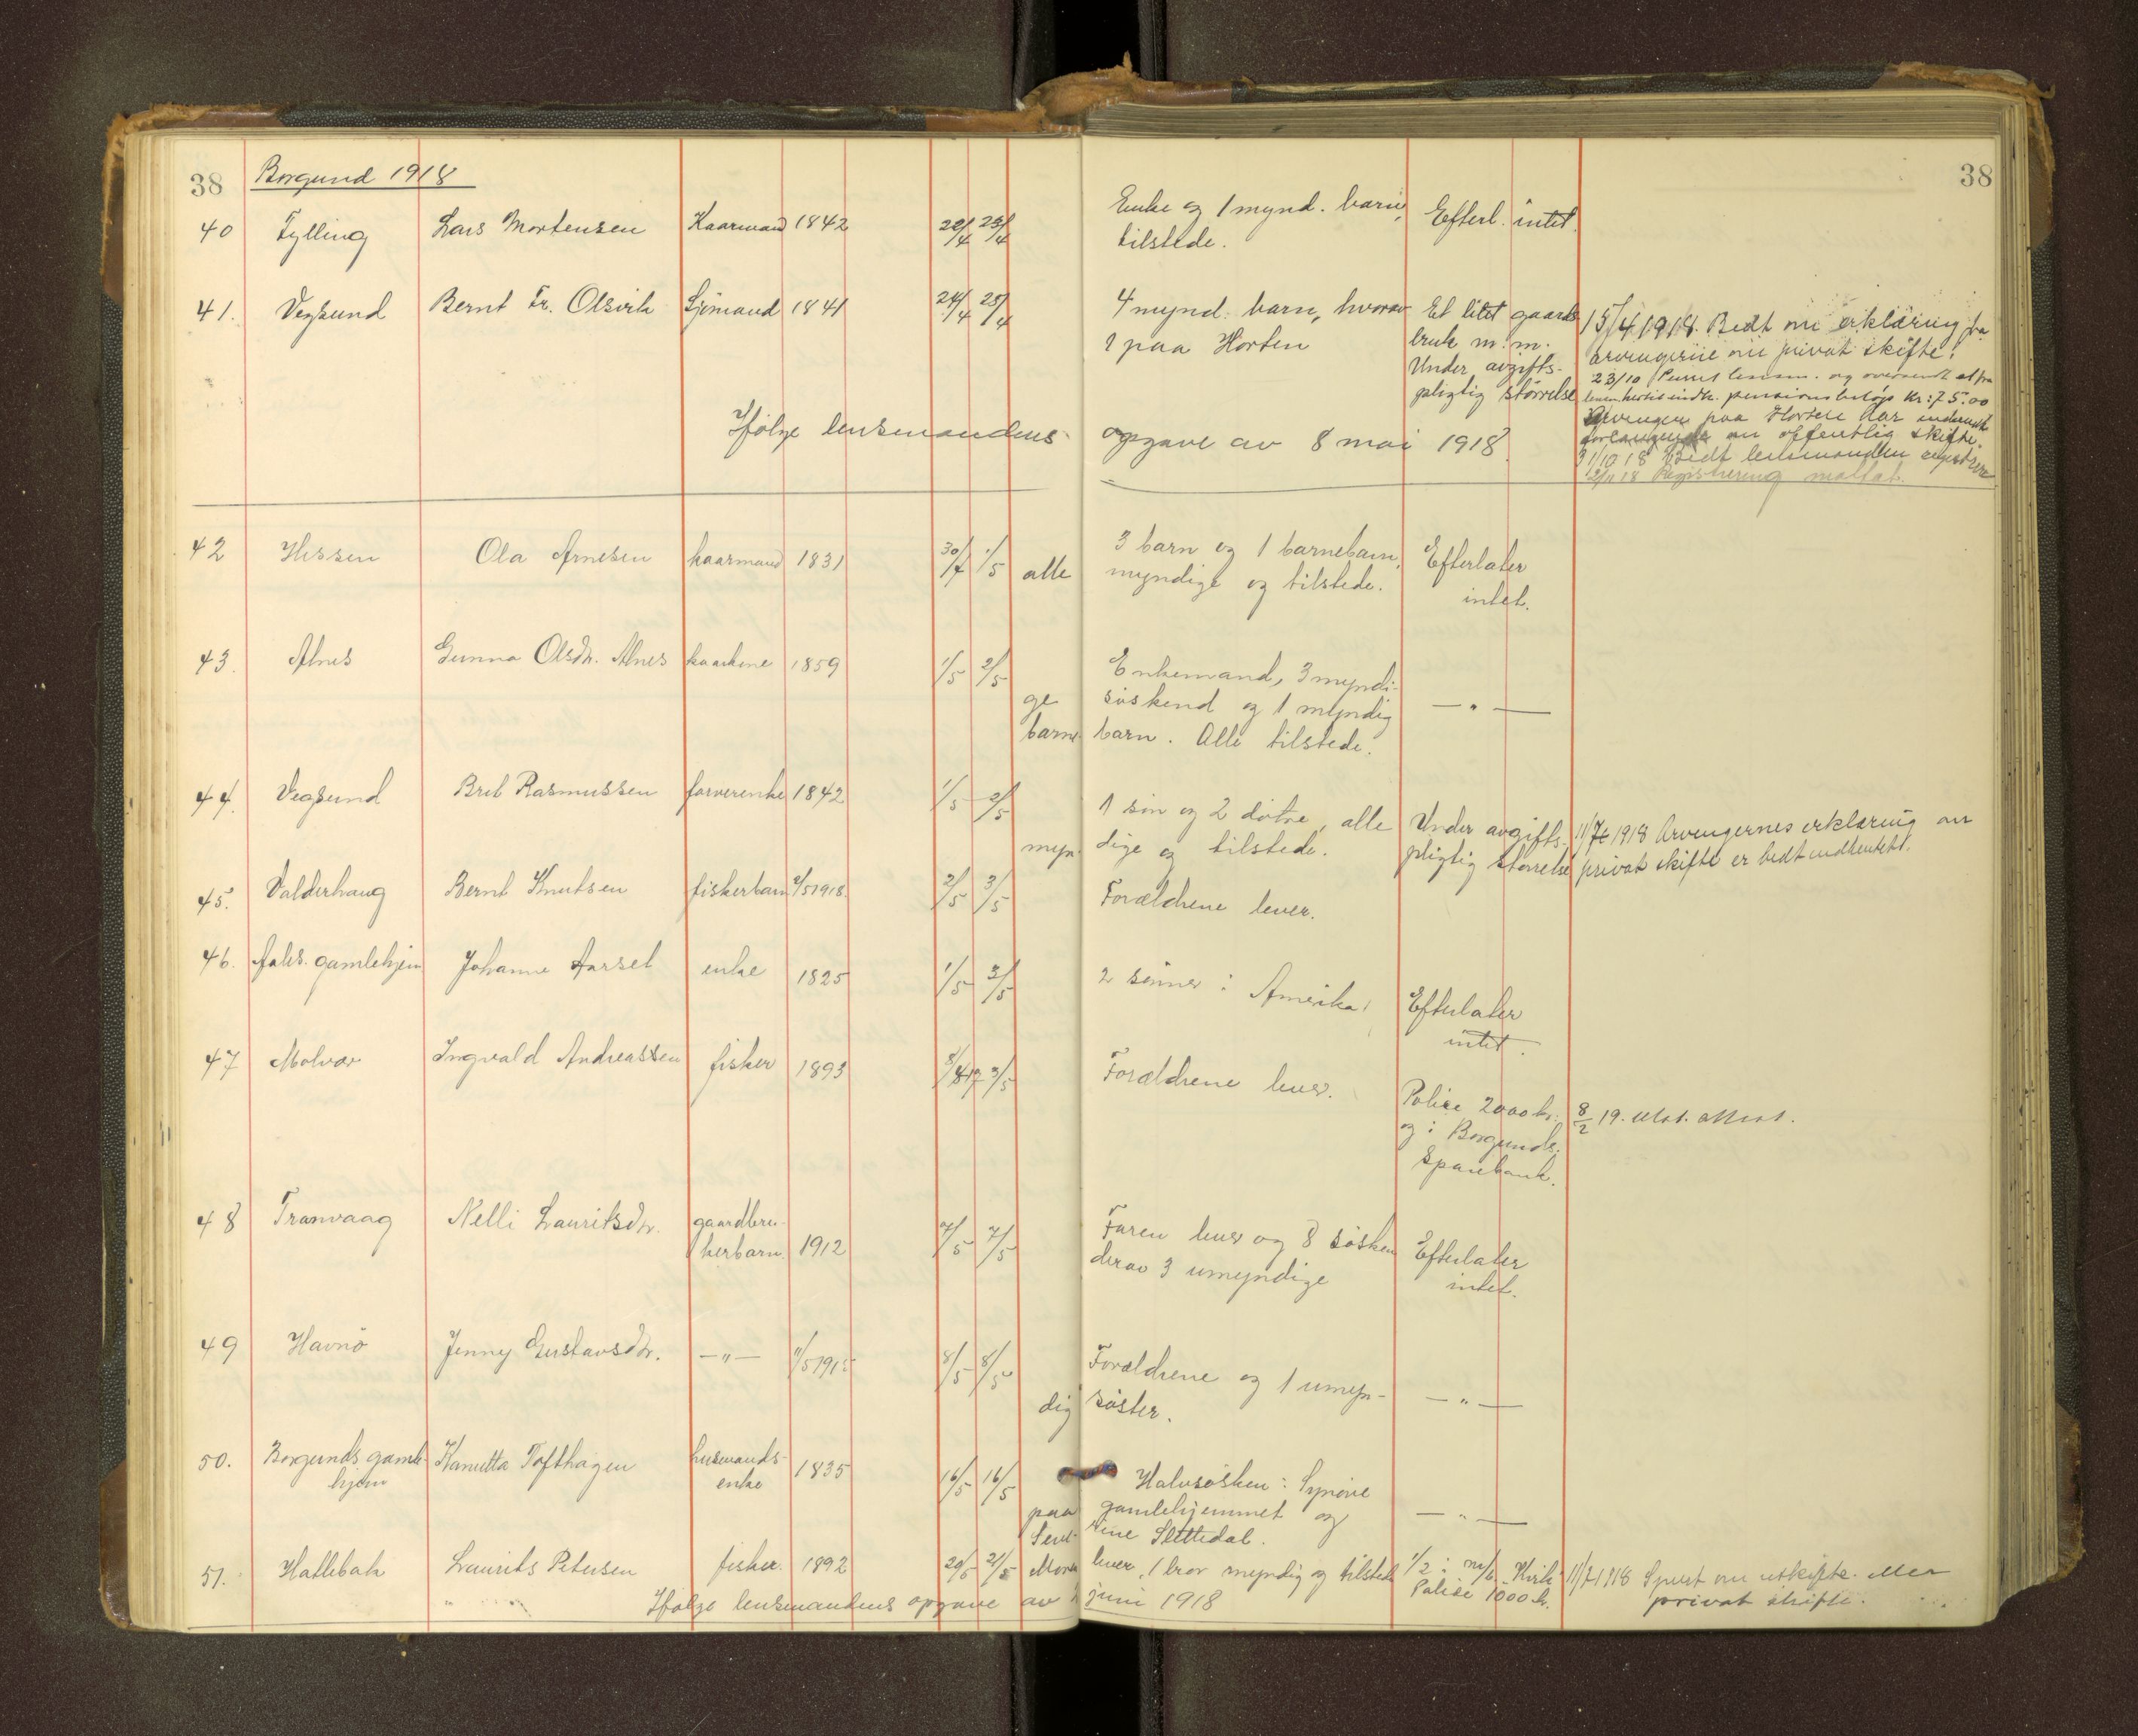 38 Borgund 1918 38
40 Fylling Lars Mortensen Kaarmand 1842 22/4 25/4 Enke og 1 mynd. barn, Efterl. intet.
tilstede.
41. Vegsund Bernt Fr. Olsvik Sjömand 1841 24/4 25/4 4 mynd. barn, hvorav Et litet gaards
1 paa Horten bruk m.m.
Under avgifts-
pligtig störrelse
15/4 1918. Bedt om erklæring fra
arvingerne om privat skifte.
23/10 Purret lensm. og oversendt et fra
pensionsbelöp kr: 75.00
Arvingen paa Horten har indsendt
forlangende om offentlig skifte.
31/10 18 Bedt lensmanden registrere
2/11 18 Registrering mottat.
Ifölge lensmandens opgave av 8 mai 1918.
42 Hessen Ola Arnesen kaarmand 1831 30/4 1/5 3 barn og 1 barnebarn, Efterlater
alle myndige og tilstede. intet.
43. Alnes Gunna Olsdr. Alnes kaarkone 1859 1/5 2/5 Enkemand, 3 myndi-
ge söskend og 1 myndig — " —
barne barn. Alle tilstede.
44. Vegsund Brit Rasmussen farverenke 1842 1/5 2/5 1 sön og 2 dötre, alle Under avgifts- 11/7 1918 Arvingernes erklæring om
myn- dige og tilstede. pligtig störrelse privat skifte er bedt indhentet.
45. Valderhaug Bernt Knutsen fiskerbarn 2/5 1918. 2/5 3/5 Forældrene lever.
46. Aales. gamlehjem Johanne Aarset enke 1825 1/5 3/5 2 sönner i Amerika. Efterlater
intet.
47 Molvær Ingvald Andreassen fisker 1893 3/5 Forældrene lever. Police 2000 kr. 8/2 19. Utst. attest.
og i Borgunds.
Sparebank.
48 Tranvaag Nelli Lauritsdr. gaardbru-
kerbarn 1912 7/5 7/5 Faren lever og 8 sösken Efterlater
derav 3 umyndige intet.
49 Havnö Jenny Gustavsdr. — " — 8/5 8/5 Forældrene og 1 umyn- — " —
dig söster.
50. Borgunds. gamle-
hjem Kanutta Tofthagen husmands-
enke 1835 16/5 16/5 Halvsösken: Synöve
paa gamlehjemmet og — " —
Slettedal.
51. Hatlebak Laurits Petersen fisker 1892 20/5 21/5 Moren lever, 1 bror myndig og tilstede 1/2 i m/k 11/7 1918 Spurt om utskifte eller
Police 1000 kr. privat skifte.
Ifölge lensmandens opgave av juni 1918